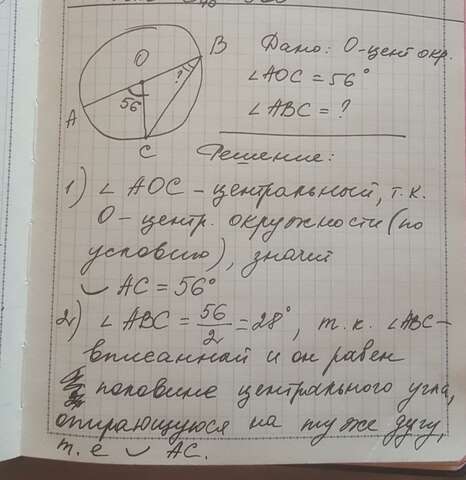 O
B
?
56
A
C
Дано: О-цент окр.
∠AOC = 56°
∠ABC = ?
Решение:
1) ∠ AOC – центральный, т.к.
О – центр. окружности (по
условию), значит
◡ AC = 56°
2) ∠ ABC = 56/2 = 28°, т.к. ∠ABC –
вписанный и он равен
половине центрального угла,
опирающуюся на ту же дугу,
т.е ◡ AC.